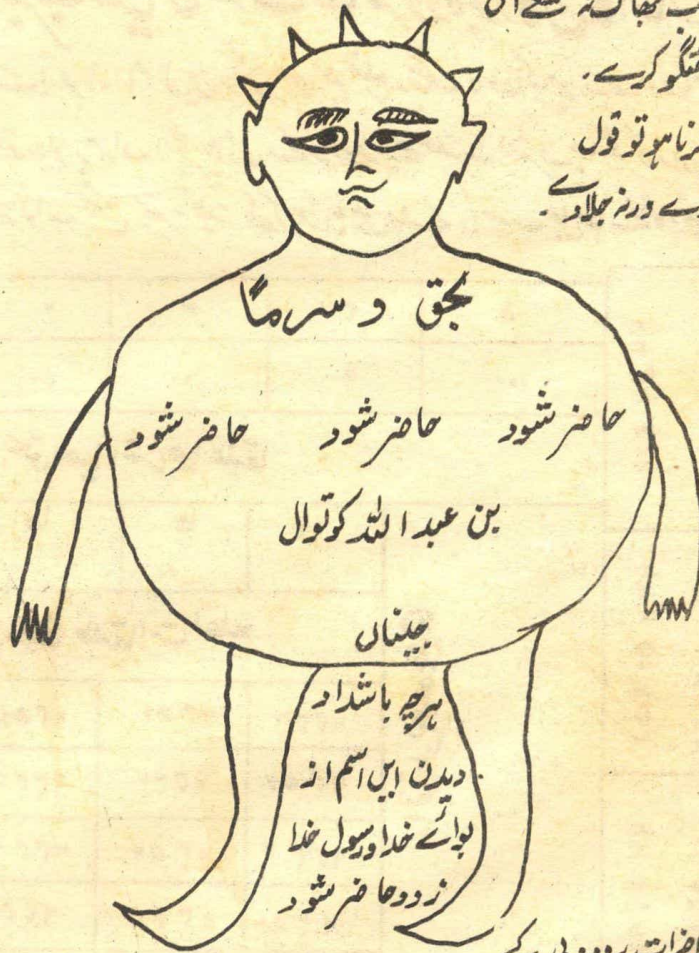 سے اس
گفتگو کرے۔
کرنا ہو تو قول
ے ورنہ جلاوے۔
بحق و سرما
حاضر شود حاضر شود حاضر شود
بن عبد اللہ کوتوال
چیناں
ہرچہ باشداد
دیدن ایں اسم از
بوائے خدا ورسول خدا
زودحاضر شود